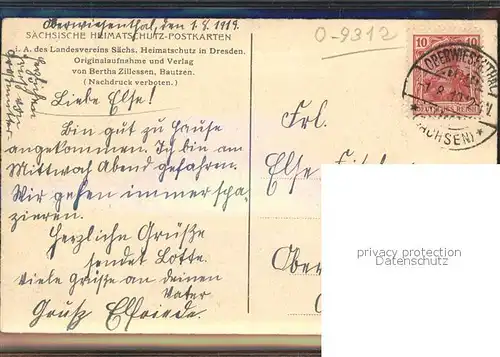 Oberwiesenthal, den 1.8.1919.
SÄCHSISCHE HEIMATSCHUTZ-POSTKARTEN
i. A. des Landesvereins Sächs. Heimatschutz in Dresden.
Originalaufnahme und Verlag
von Bertha Zillessen, Bautzen.
(Nachdruck verboten.)
Liebe Else!
Bin gut zu Hause
angekommen. Ich bin am
Mittwoch Abend gefahren.
Wir gehen immer spa-
zieren.
Herzliche Grüße
sendet Lotte.
Viele Grüße an deinen
Vater
Gruß Elfriede.
O-9312
10
OBERWIESENTHAL
(SACHSEN)
DEUTSCHES REICH
Frl.
Else
Ober
privacy protection
Datenschutz